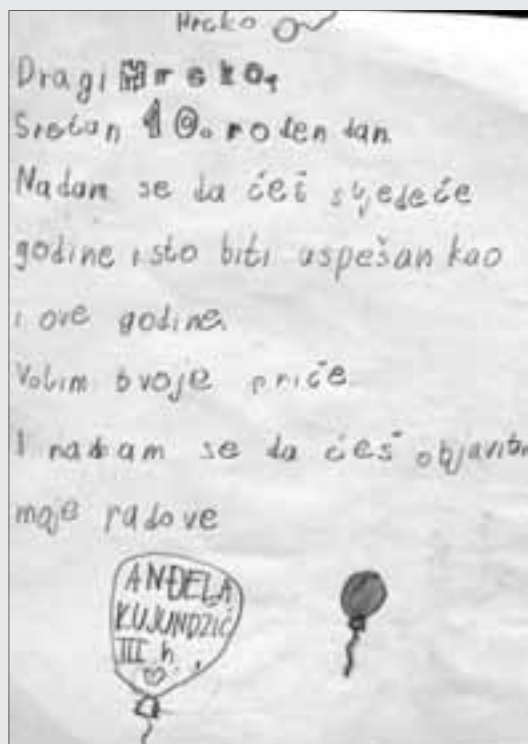 Hrcko
Dragi Hrcko,
Sretan 10. rođen dan
Nadam se da ćeš sljedeće
godine isto biti uspešan kao
i ove godine.
Volim tvoje priče
I nadam se da ćeš objaviti
moje radove
ANĐELA
KUJUNDZIĆ
III h